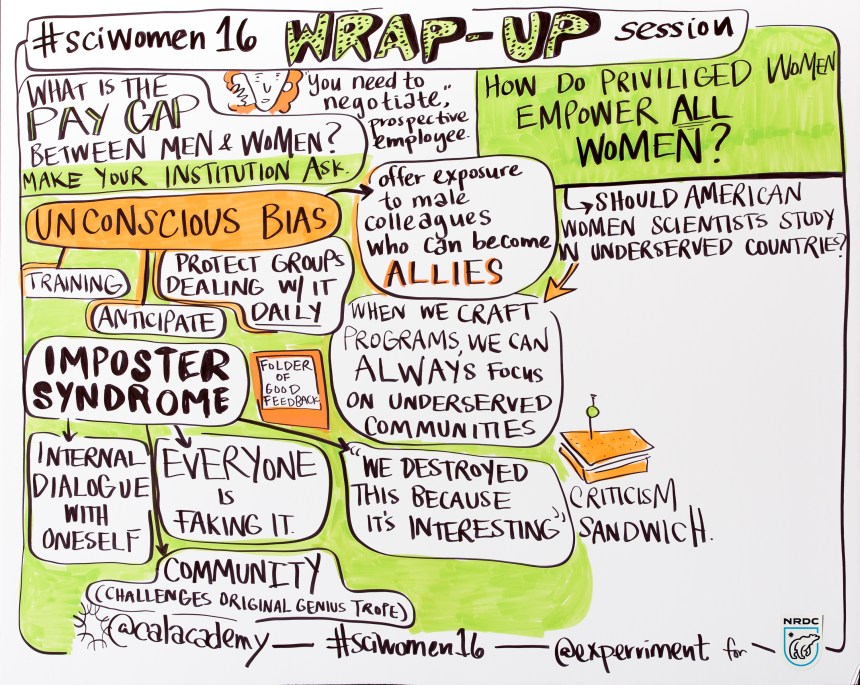 #sciwomen 16 WRAP-UP session
WHAT IS THE
PAY GAP
BETWEEN MEN & WOMEN?
MAKE YOUR INSTITUTION ASK.
"You need to
negotiate,"
prospective
employee.
HOW DO PRIVILIGED WOMEN
EMPOWER ALL
WOMEN?
SHOULD AMERICAN
WOMEN SCIENTISTS STUDY
IN UNDERSERVED COUNTRIES?
UNCONSCIOUS BIAS
offer exposure
to male
colleagues
who can become
ALLIES
TRAINING
ANTICIPATE
PROTECT GROUPS
DEALING W/ IT
DAILY
WHEN WE CRAFT
PROGRAMS, WE CAN
ALWAYS FOCUS
ON UNDERSERVED
COMMUNITIES
IMPOSTER
SYNDROME
FOLDER
OF
GOOD
FEEDBACK
INTERNAL
DIALOGUE
WITH
ONESELF
EVERYONE
IS
FAKING IT.
"WE DESTROYED
THIS BECAUSE
IT'S INTERESTING"
CRITICISM
SANDWICH.
COMMUNITY
(CHALLENGES ORIGINAL GENIUS TROPE)
@calacademy — #sciwomen16 — @experriment for —
NRDC